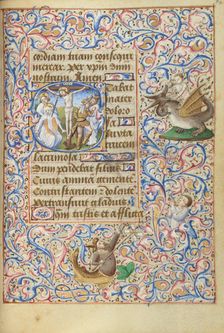 cordiam tuam consequi
merear. per xpm dnm
nostrum. Amen.
Stabat
mater
doloro
sa iuxta
crucem
lacrimosa
Dum pendebat filius
Cuius animam gementem
Contristantem et dolente
Pertransiuit gladius
O quam tristis et afflicta